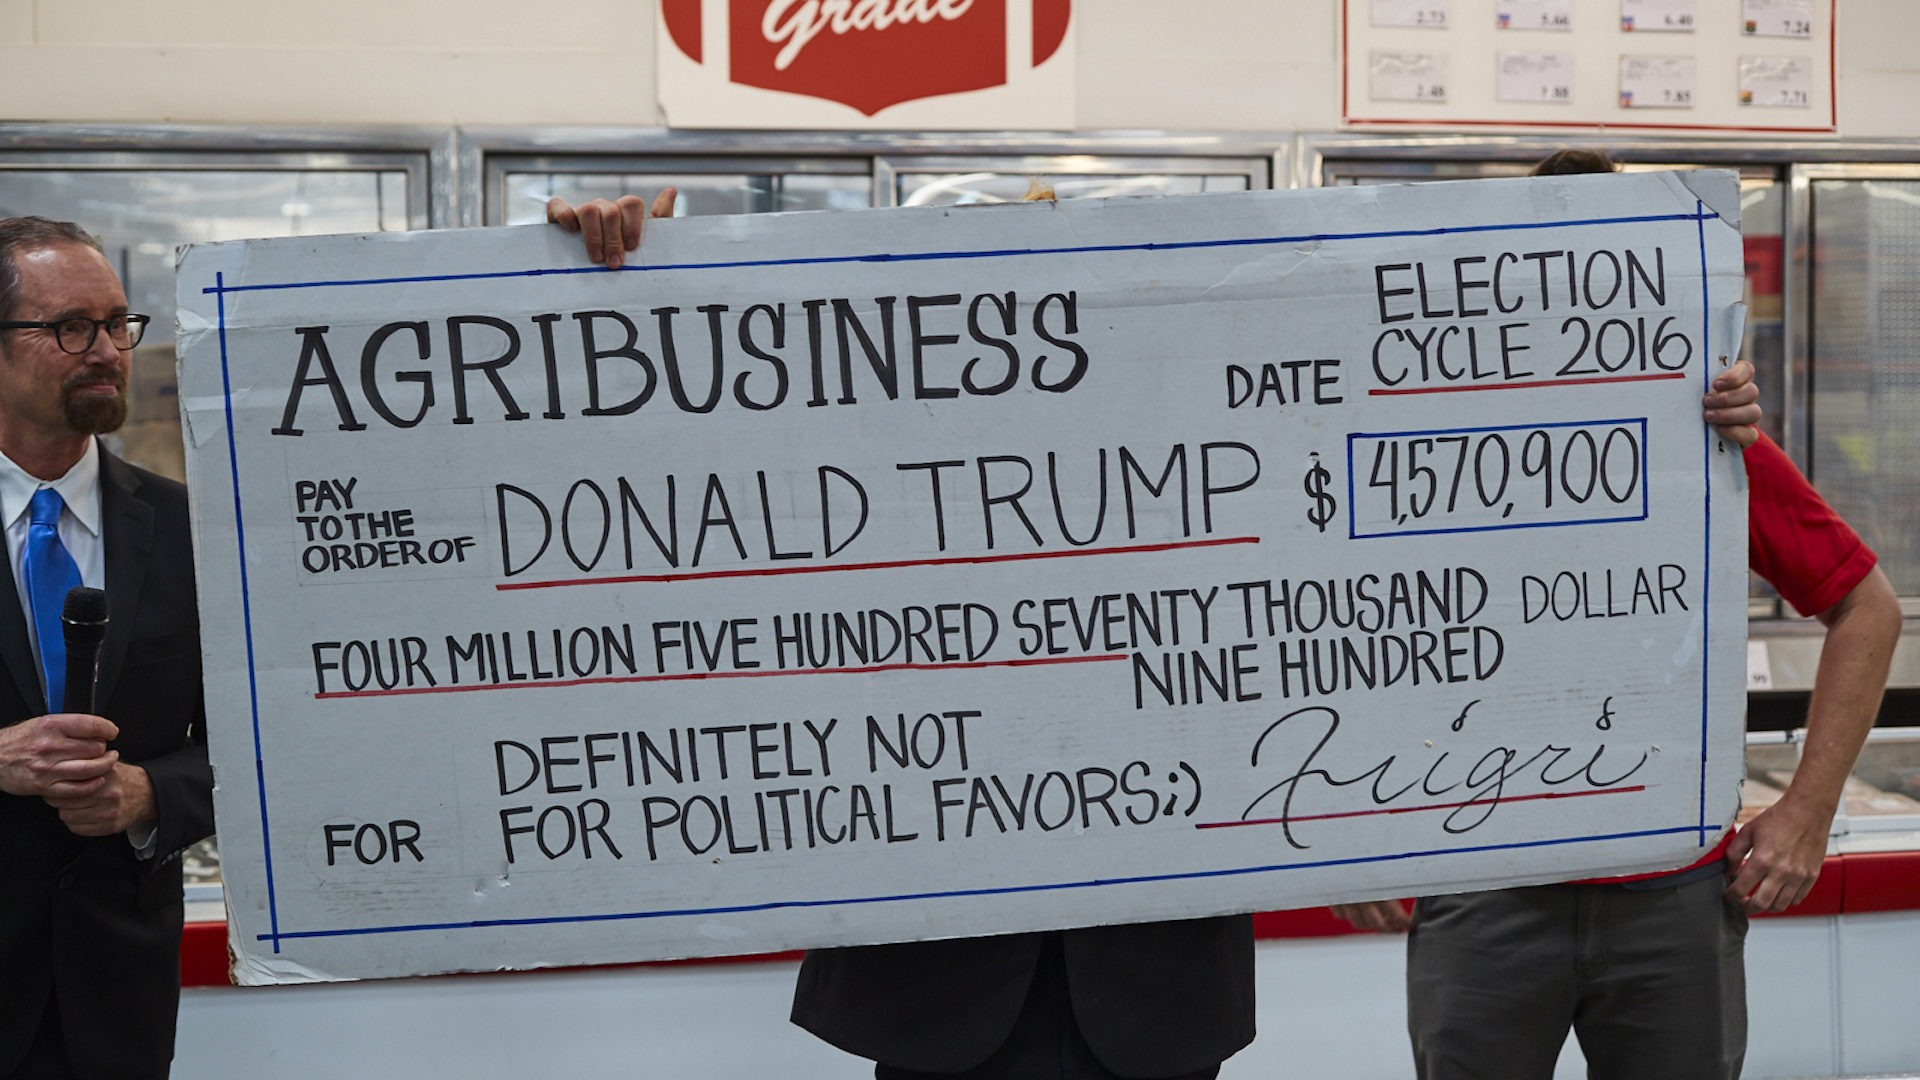 Grade
2.73 5.66 6.40 7.24
2.48 7.88 7.85 7.71
AGRIBUSINESS
DATE ELECTION
CYCLE 2016
PAY
TO THE
ORDER OF
DONALD TRUMP $ 4,570,900
FOUR MILLION FIVE HUNDRED SEVENTY THOUSAND DOLLAR
NINE HUNDRED
FOR DEFINITELY NOT
FOR POLITICAL FAVORS;)